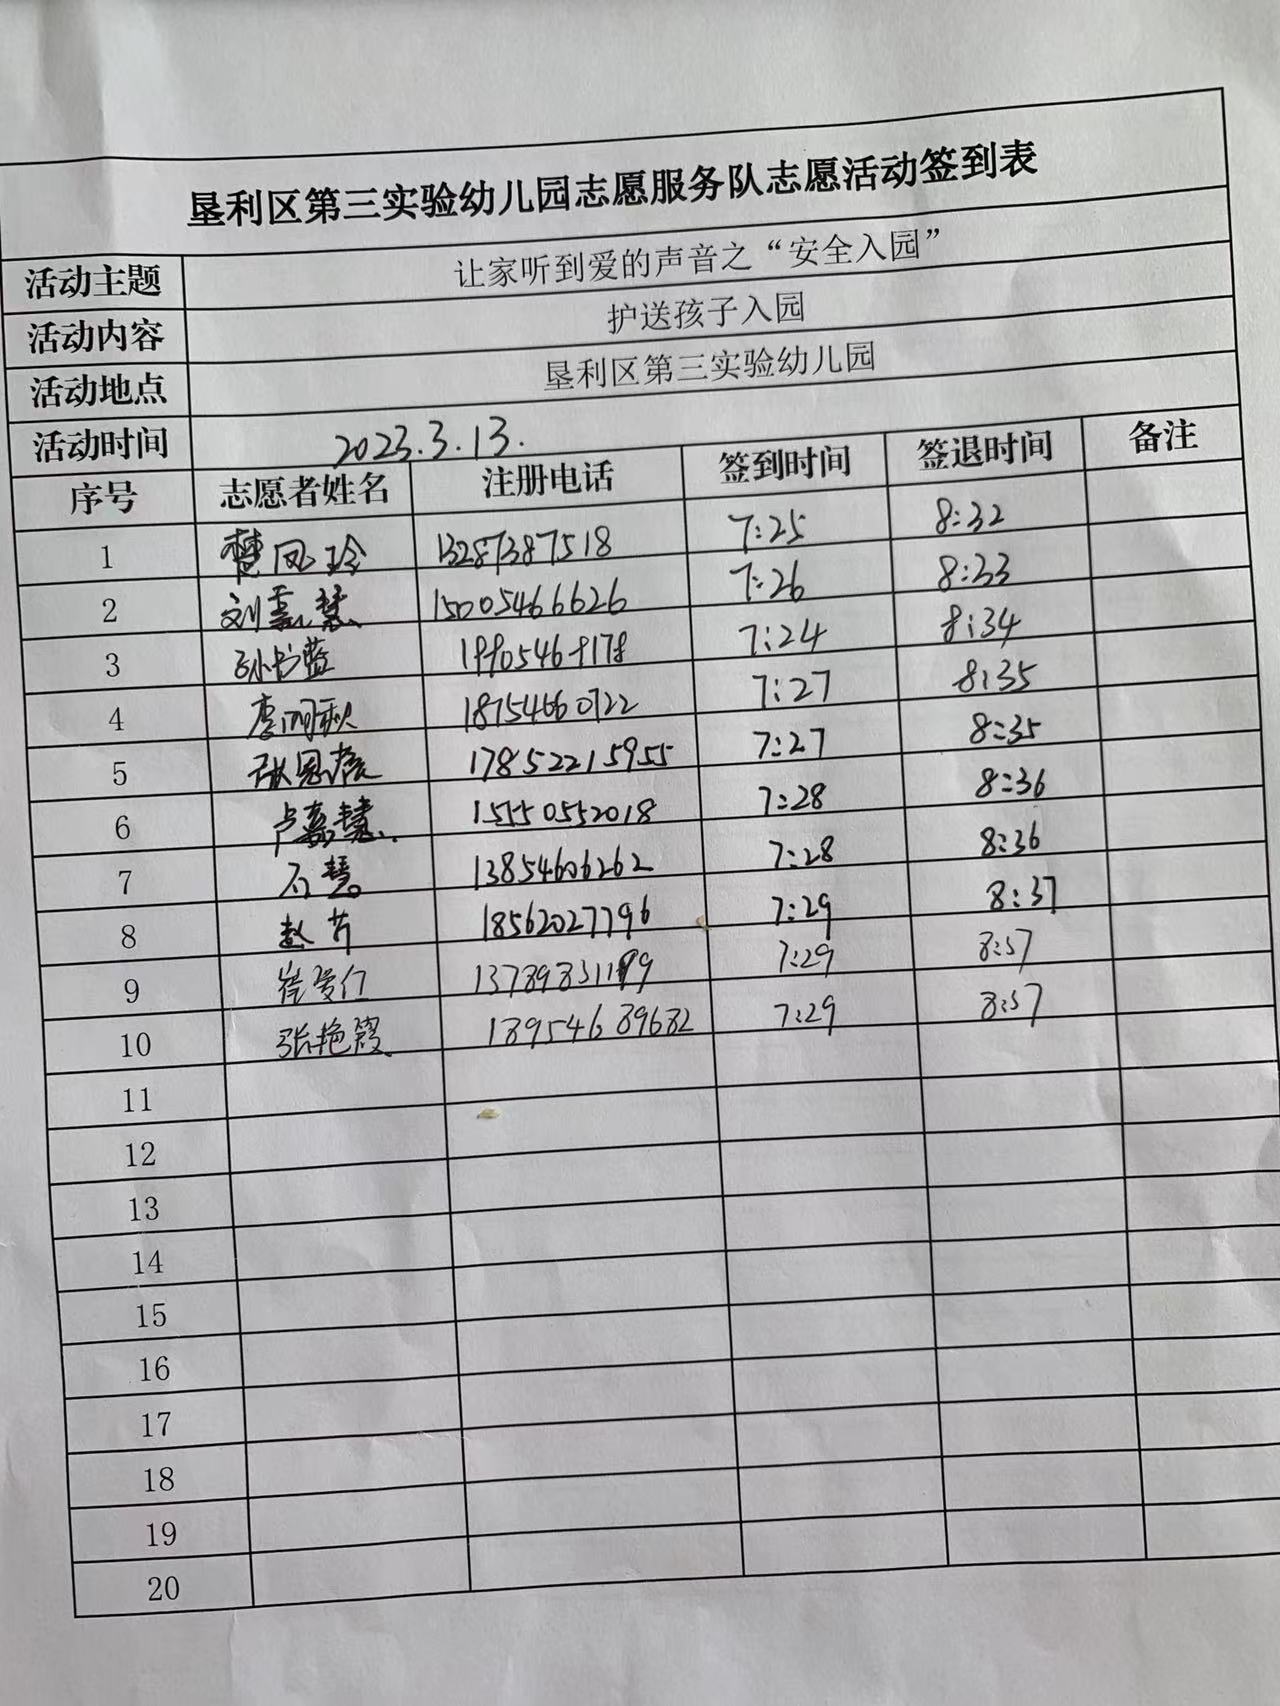 垦利区第三实验幼儿园志愿服务队志愿活动签到表
活动主题 让家听到爱的声音之“安全入园”
活动内容 护送孩子入园
活动地点 垦利区第三实验幼儿园
活动时间 2023.3.13.
序号 志愿者姓名 注册电话 签到时间 签退时间 备注
1 楚凤玲 13287387518 7:25 8:32
2 刘嘉慧 15005466626 7:26 8:33
3 孙书蓝 7:24 8:34
4 李润秋 18754660722 7:27 8:35
5 17852215955 7:27 8:35
6 卢嘉慧 15550552018 7:28 8:36
7 石慧 13854606262 7:28 8:36
8 赵芹 18562027796 7:29 8:37
9 崔爱仁 7:29 8:37
10 张艳霞 18954689682 7:29 8:37
11
12
13
14
15
16
17
18
19
20